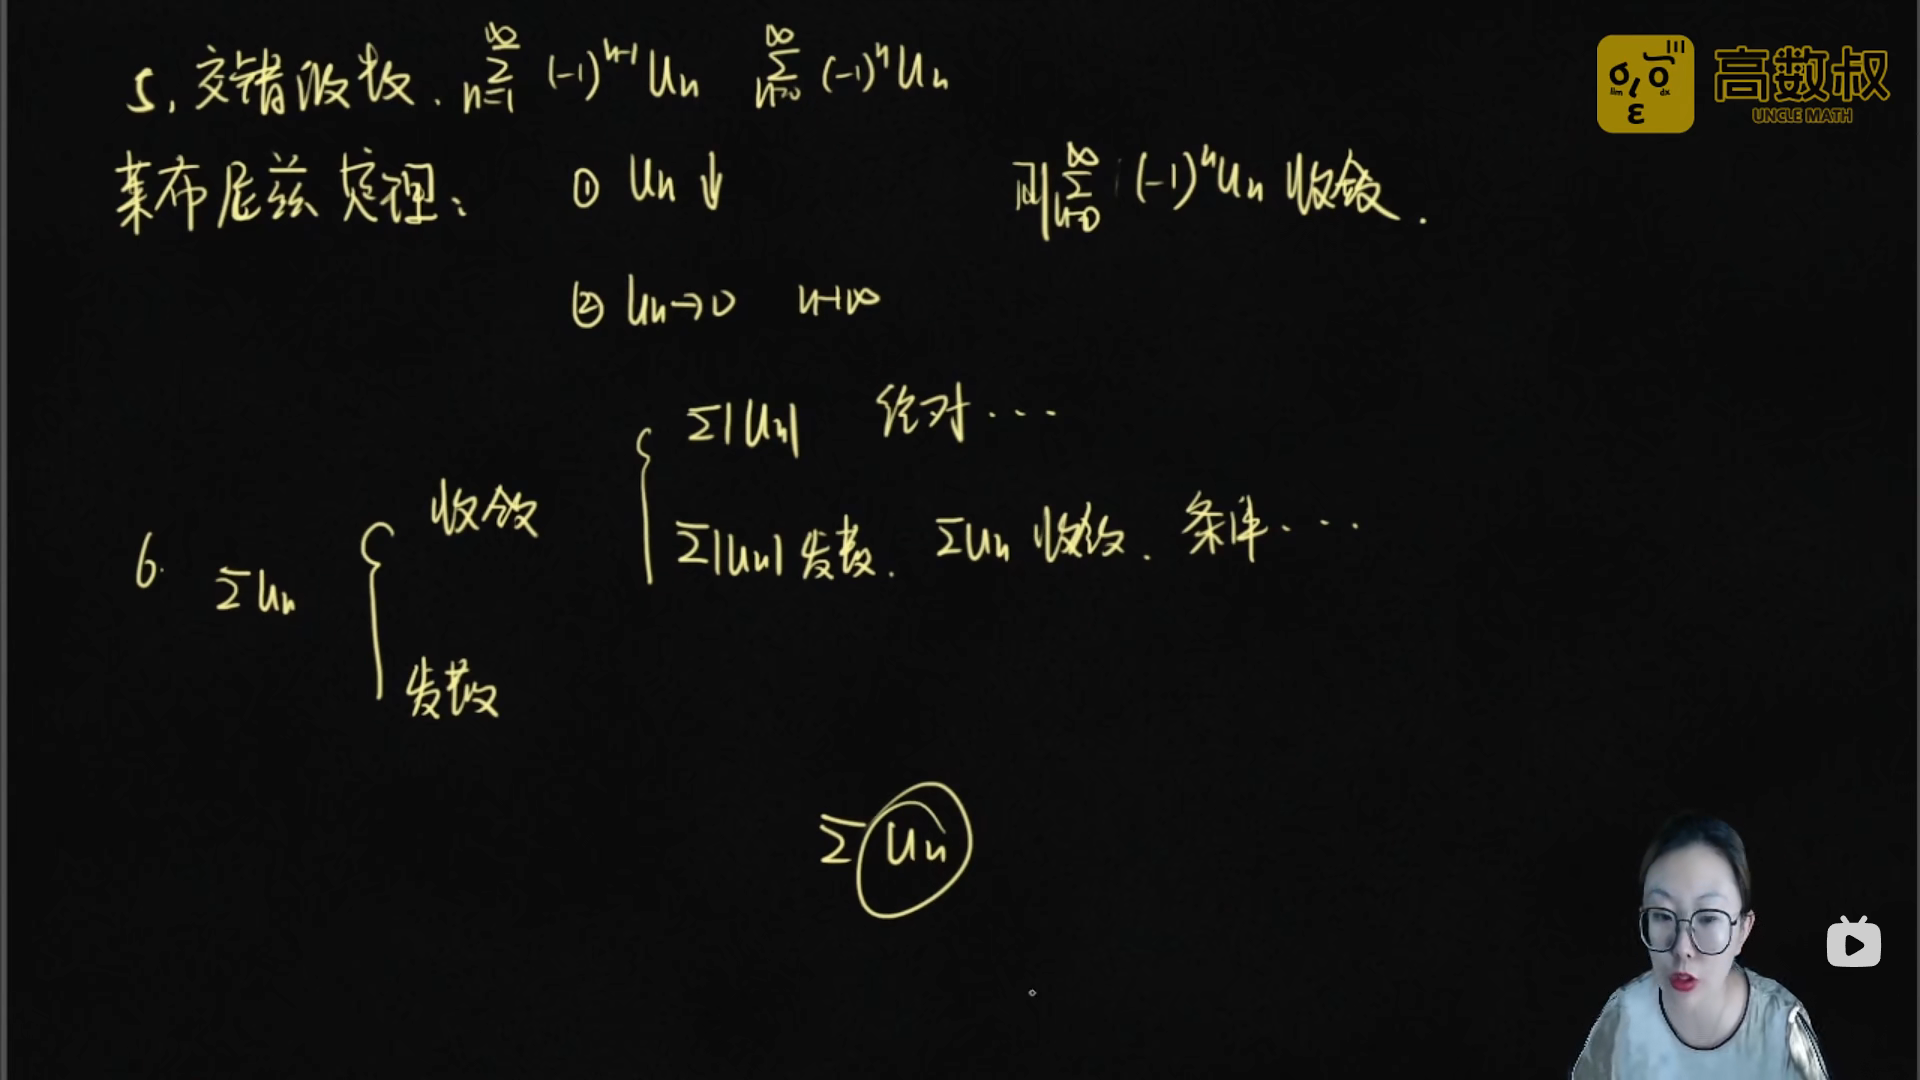 5. 交错级数. ∞∑n=1 (-1)^{n-1} Un ∞∑n=0 (-1)^n Un
莱布尼兹定理: ① Un ↓ 则 ∞∑n=0 (-1)^n Un 收敛.
② Un→0 n→∞
∑|Un| 绝对...
收敛
∑|Un| 发散. ∑Un 收敛. 条件...
6. ∑Un
发散
∑Un
高数叔
UNCLE MATH
lim
dx